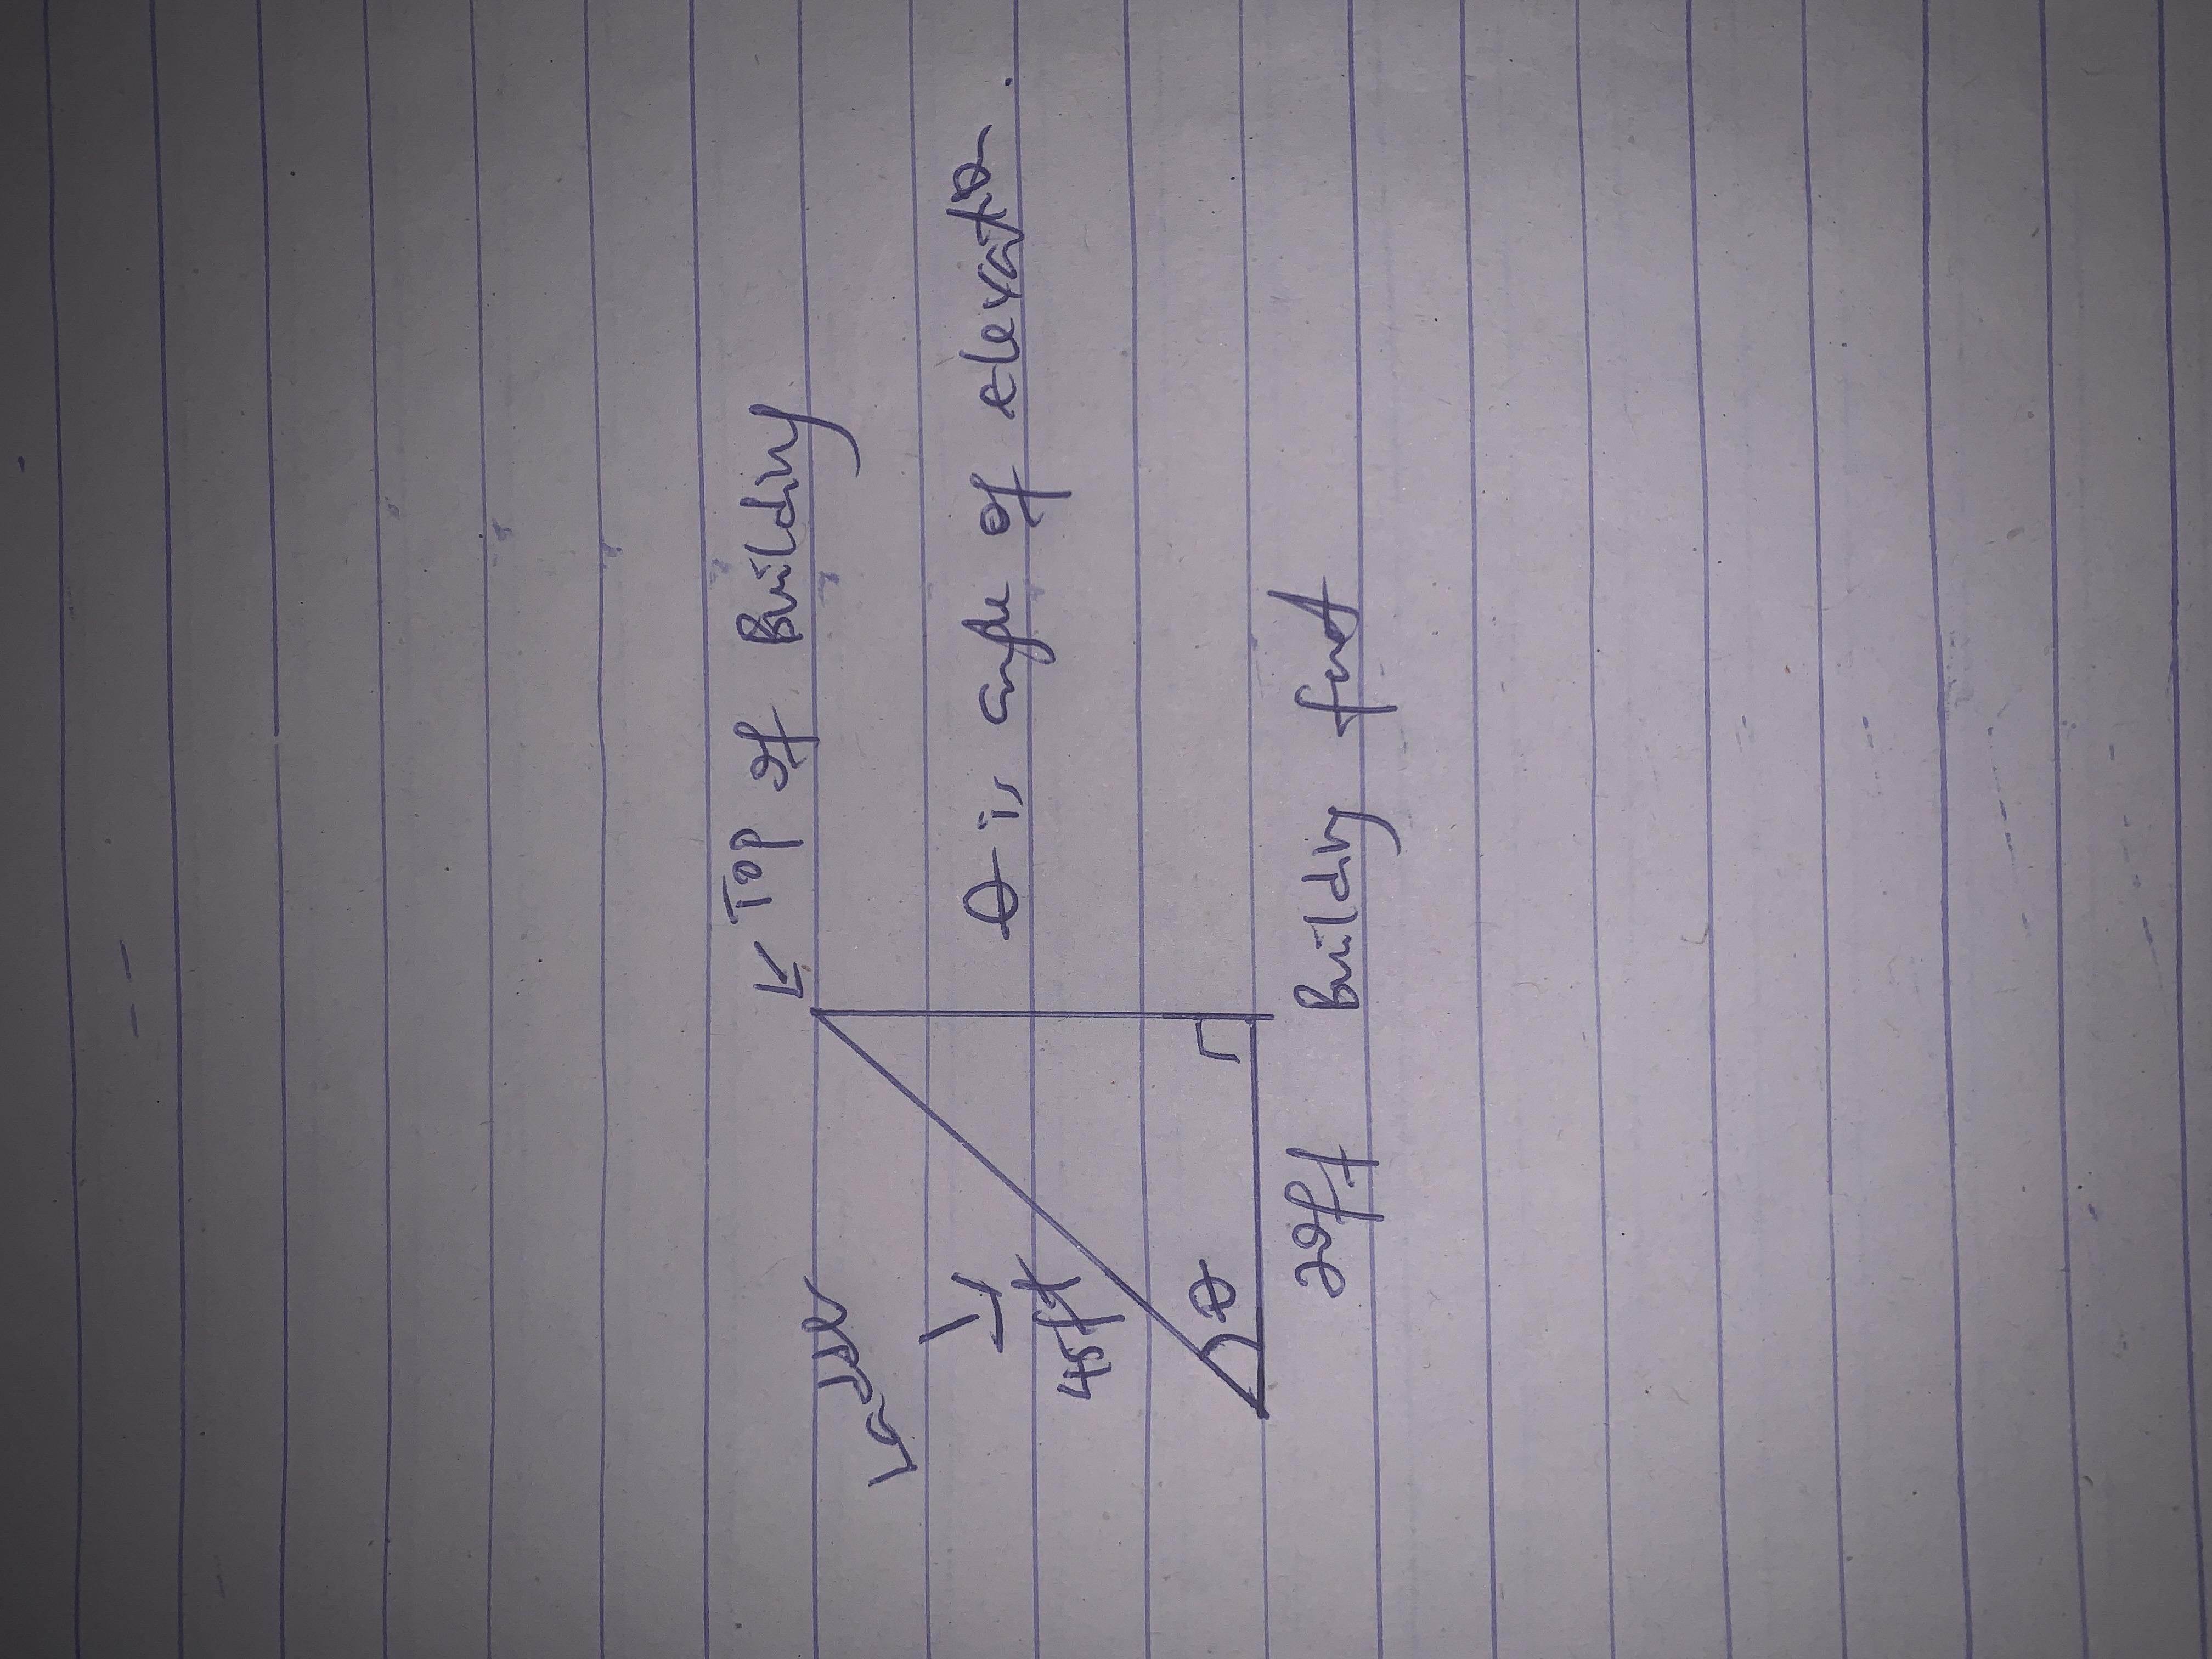 Top of Building
Ladder
θ is angle of elevation.
45ft
θ
20ft
Building foot